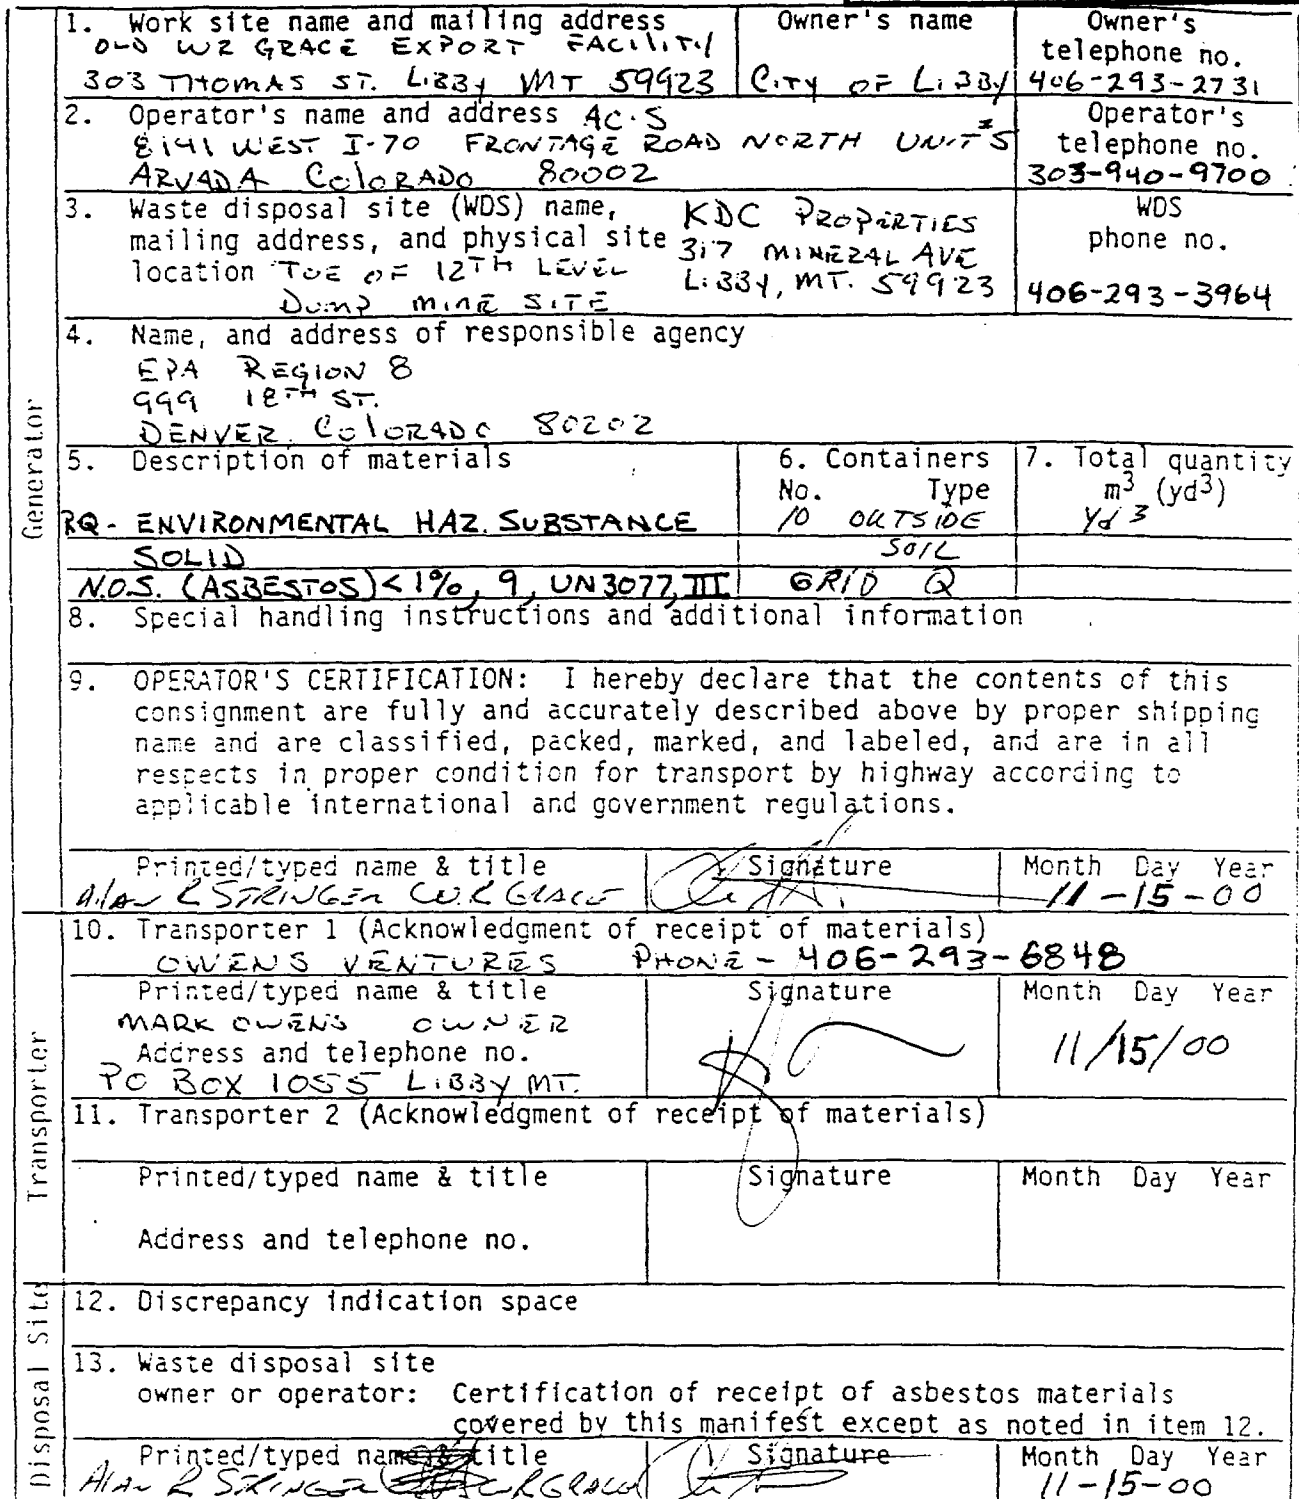 1. Work site name and mailing address
OLD WR GRACE EXPORT FACILITY
303 THOMAS ST. LIBBY MT 59923
Owner's name
CITY OF LIBBY
Owner's telephone no.
406-293-2731
2. Operator's name and address AC·S
8141 WEST I-70 FRONTAGE ROAD NORTH UNIT #5
ARVADA COLORADO 80002
Operator's telephone no.
303-940-9700
3. Waste disposal site (WDS) name,
mailing address, and physical site
location TOE OF 12TH LEVEL
DUMP MINE SITE
KDC PROPERTIES
317 MINERAL AVE
LIBBY, MT. 59923
WDS
phone no.
406-293-3964
4. Name, and address of responsible agency
EPA REGION 8
999 18TH ST.
DENVER, COLORADO 80202
5. Description of materials
6. Containers
No. Type
7. Total quantity
m3 (yd3)
RQ - ENVIRONMENTAL HAZ. SUBSTANCE
10 OUTSIDE
Yd 3
SOLID
SOIL
N.O.S. (ASBESTOS) <1%, 9, UN3077, III
GRID Q
8. Special handling instructions and additional information
9. OPERATOR'S CERTIFICATION: I hereby declare that the contents of this
consignment are fully and accurately described above by proper shipping
name and are classified, packed, marked, and labeled, and are in all
respects in proper condition for transport by highway according to
applicable international and government regulations.
Printed/typed name & title
Signature
Month Day Year
Alan R STRINGER W.R GRACE
11-15-00
10. Transporter 1 (Acknowledgment of receipt of materials)
OWENS VENTURES PHONE - 406-293-6848
Printed/typed name & title
Signature
Month Day Year
MARK OWENS OWNER
11/15/00
Address and telephone no.
PO BOX 1055 LIBBY MT.
11. Transporter 2 (Acknowledgment of receipt of materials)
Printed/typed name & title
Signature
Month Day Year
Address and telephone no.
12. Discrepancy indication space
13. Waste disposal site
owner or operator: Certification of receipt of asbestos materials
covered by this manifest except as noted in item 12.
Printed/typed name & title
Signature
Month Day Year
Alan R STRINGER W R GRACE
11-15-00
Generator
Transporter
Disposal Site